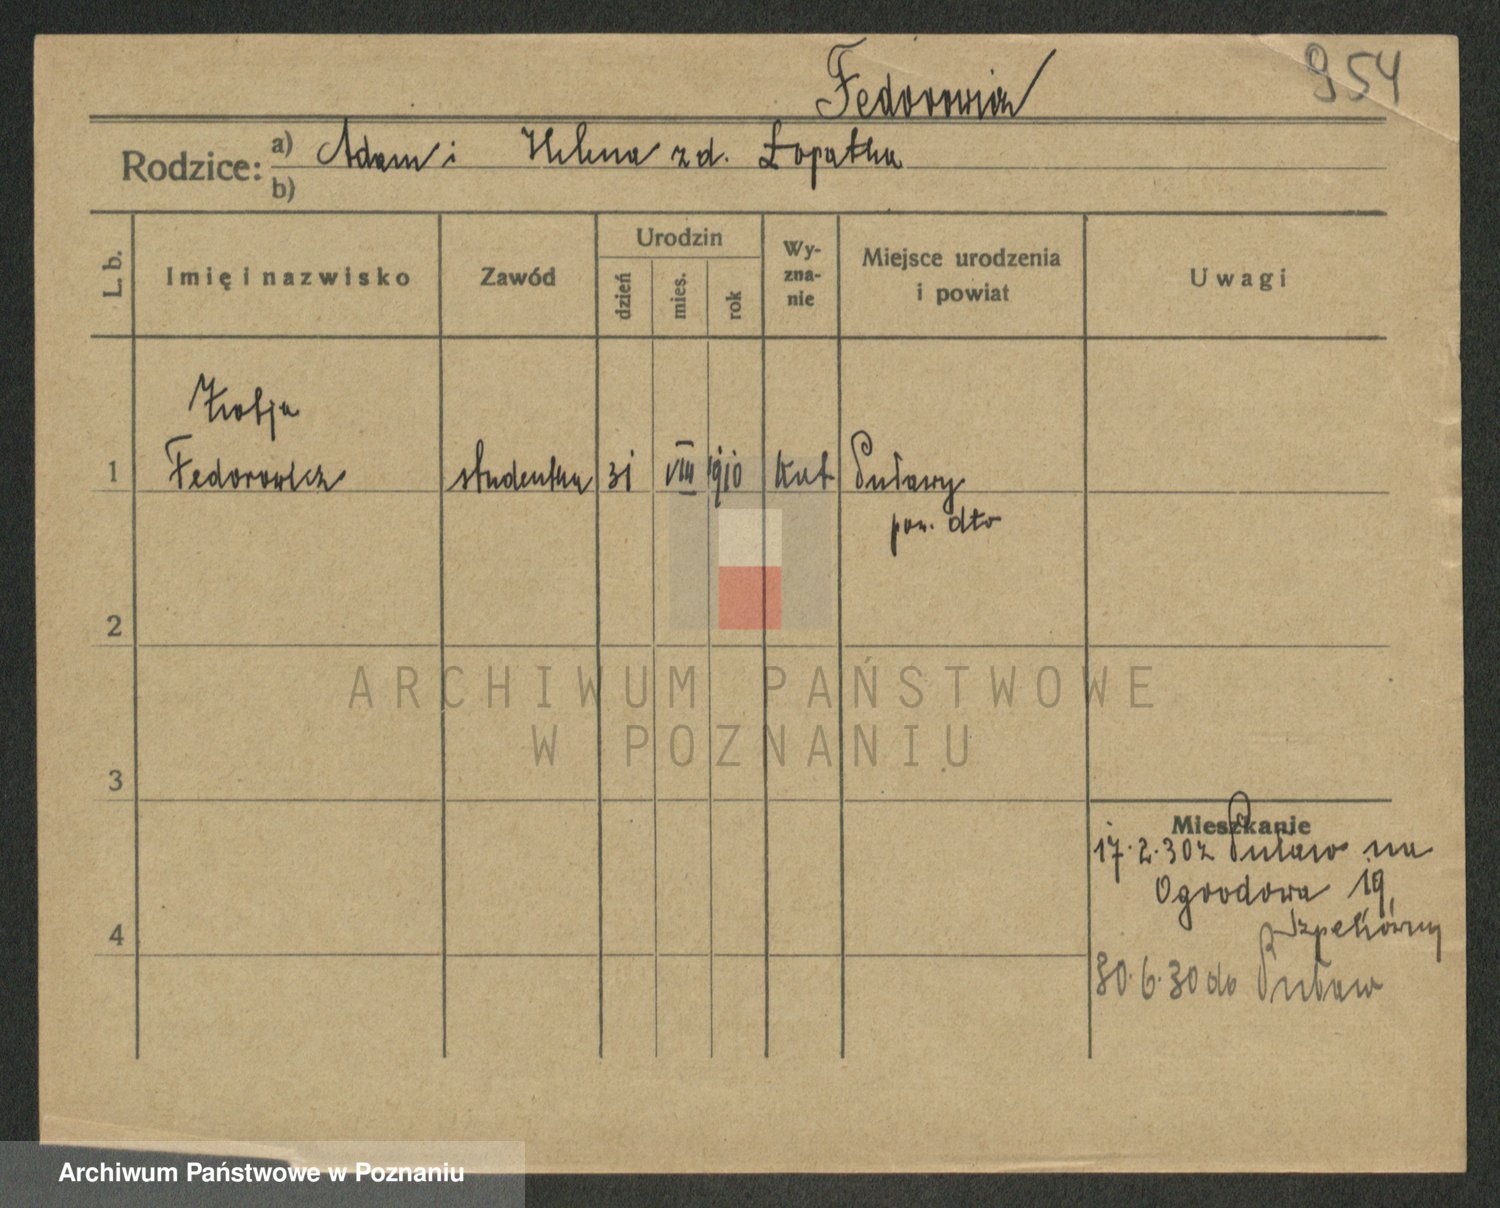 Fedorowicz
954
Rodzice: a) Adam i Helena z d. Łopatka
b)
L. b.
Imię i nazwisko
Zawód
Urodzin
dzień
mies.
rok
Wy-
zna-
nie
Miejsce urodzenia
i powiat
Uwagi
1 Fedorowicz studentka 31 VIII 1910 kat Puławy
pow. dto
2
ARCHIWUM PAŃSTWOWE
W POZNANIU
3
Mieszkanie
17.2.30 z Puław na
Ogrodowa 19
4
30.6.30 do Puław
Archiwum Państwowe w Poznaniu